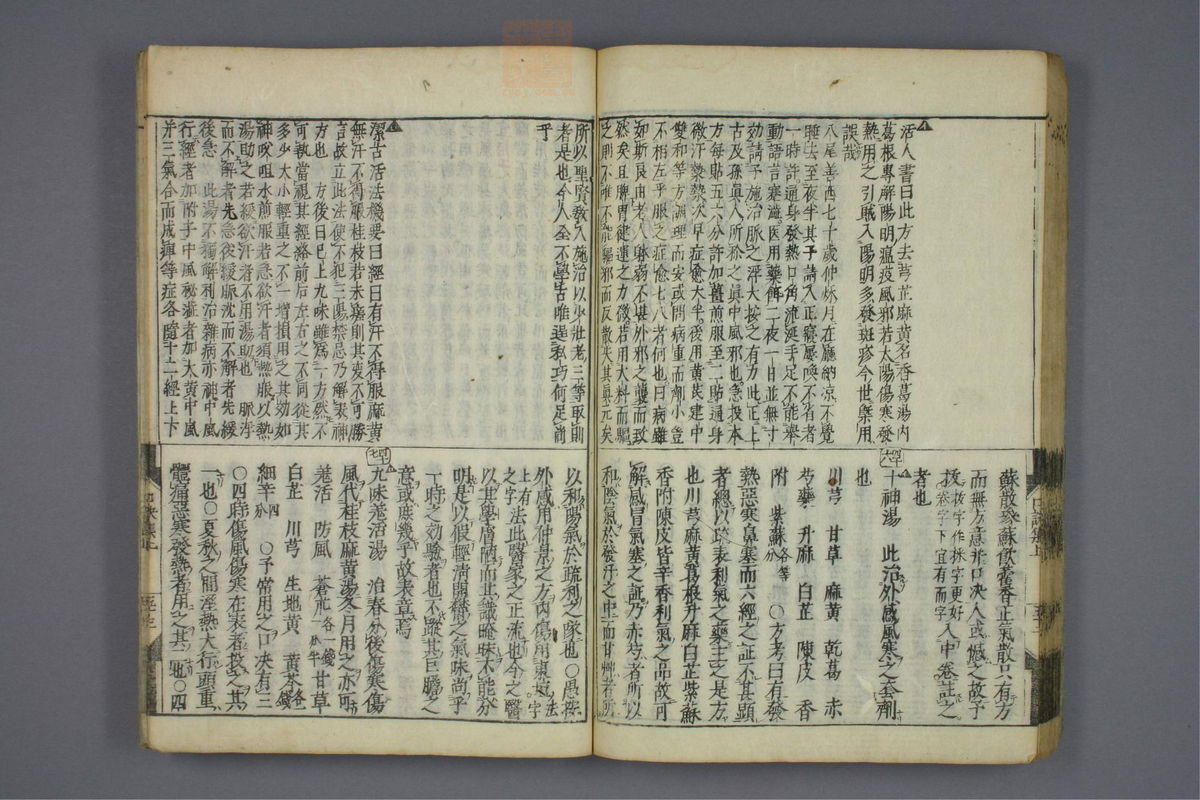 活人書曰此方去芎芷麻黄名香葛湯内
葛根專解陽明瘟疫風邪若太陽傷寒發
熱用之引賊入陽明多發斑疹今世槩用
誤哉
八尾善西七十歳仲秋月在廳納凉不覺
睡去至夜半其子請入正寢屢喚不省者
一時許通身發熱口角流涎手足不能舉
動語言蹇澁医用藥餌二夜一日並無寸
効請予施治脉之浮大按之有力此正上
古及孫眞人所称之眞中風邪也急投本
方每貼五六分許加薑煎服至二貼通身
微汗漐漐次早症愈大半後用黄芪建中
雙和等方調理而安或問病重而劑小豈
不相左乎服之症愈七八者何也曰病雖
如斯良由老人脉弱不甚外邪之襲而致
然矣且脾胃健運之力微若用大料而驅
之則不唯不能驅邪而反散失其眞元矣
蘇散參蘇飲藿香正氣散只有方
而無方意并口决入或憾之故予
按按字作抹字更好入中卷註之
然字下宜有而字
者也
十神湯 此治外感風寒之套劑
也
川芎 甘草 麻黄 乾葛 赤
芍藥 升麻 白芷 陳皮 香
附 紫蘇各等分 〇方考曰有發
熱惡寒鼻塞而六經之証不甚顯
者總以疏表利氣之藥主之是方
也川芎麻黄葛根升麻白芷紫蘇
香附陳皮皆辛香利氣之品故可
解感冒氣塞之証乃赤芍者所以
和陰氣於發汗之中而甘艸者所
所以聖賢教人施治以少壯老三等取則
者是也今人全不學古唯逞私巧何足尚
乎
潔古活法機要曰經曰有汗不得服麻黄
無汗不得服桂枝若未差則其変不可勝
言故立此法使不犯三陽禁忌乃解表神
方也 方後曰已上九味雖爲一方然不
可執當視其經絡前后左右之不同從其
多少大小輕重之不一增損用之其効如
神㕮咀水煎服若急欲汗者須熱服以熱
湯助之若緩欲汗者不用湯助也 脈浮
而不解者先急後緩脈沈而不解者先緩
後急 此湯不獨解利治雜病亦神中風
行經者加附子中風秘澁者加大黄中風
并三氣合而成痺等症各隨十二經上下
以和陽氣於疏利之隊也〇愚按
外感用仲景之方内傷用東垣之字
法上有法此醫家之正流也今之醫
以其學膚陋而其識暗昧不能分
明是以假輕淸開鬱之氣味尚乎
一時之効驗者也不蹤其巨膽之
意或庶幾乎故表章焉
九味羗活湯 治春分後傷寒傷
風代桂枝麻黄湯冬月用之亦可
羗活 防風 蒼朮各一錢一分半 甘草
白芷 川芎 生地黄 黄芩各一錢
細辛四分 〇予常用之口决有三
〇四時傷風傷寒在表者投之其
一也〇夏秋之間溼熱大行頭重
體痛惡寒發熱者用之其二也〇四